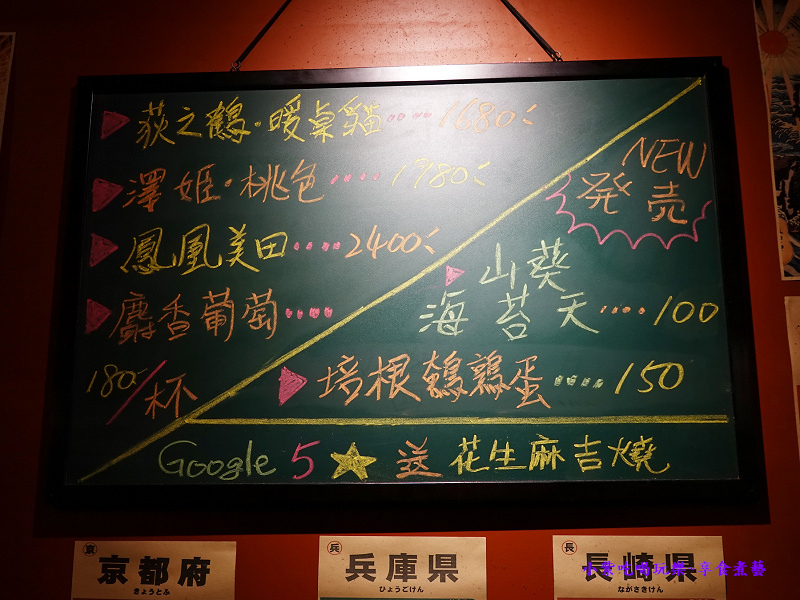 荻之鶴·暖桌貓····1680.-
澤姬·桃色····1980.-
鳳凰美田····2400.-
麝香葡萄····
180.-/杯
NEW
発売
山葵
海苔天····100
培根鵪鶉蛋····150
Google 5★送花生麻吉燒
京 京都府
きょうとふ
兵 兵庫県
ひょうごけん
長 長崎県
ながさきけん
小虎吃喝玩樂-享食煮藝